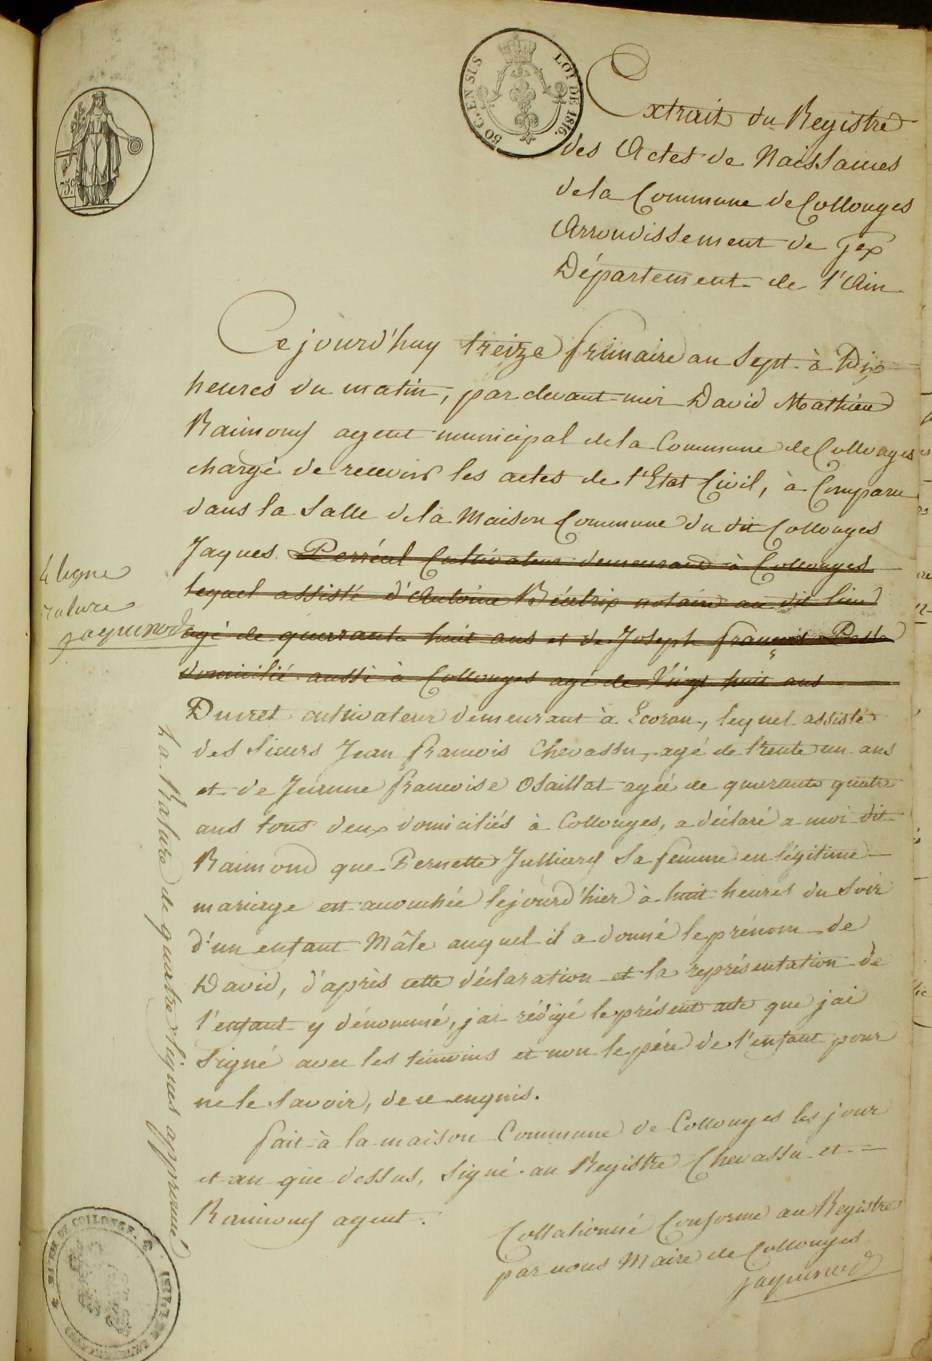 50 C. EN SUS
LOI DE 1816.
Extrait du Registre
des Actes de Naissances
de la Commune de Collonges
Arrondissement de Gex
Département de l'Ain
Ce jourd'huy treize frimaire an Sept à Dix
heures du matin, par devant moi David Mathieu
Raimond agent municipal de la Commune de Collonges
chargé de recevoir les actes de l'Etat Civil, à Comparu
dans la Salle de la Maison Commune du dit Collonges
Jaques Perréal Cultivateur demeurant à Collonges
lequel assisté d'Antoine Béatrix notaire au dit lieu
agé de quarante huit ans et de Joseph françois
domicilié aussi à Collonges agé de Vingt huit ans
4 ligne
rature
Jaquinod
Ducret cultivateur demeurant à Ecoran, lequel assisté
des Sieurs Jean francois Chevassu, agé de trente un ans
et de Jeanne francoise Osaillat agée de quarante quatre
ans tous deux domiciliés à Collonges, a déclaré a moi dit
Raimond que Pernette Julliard Sa femme en légitime
mariage est accouchée lejourd'hier à huit heures du Soir
d'un enfant Mâle auquel il a donné le prénom de
David, d'après cette déclaration et la représentation de
l'enfant y dénommé, j'ai rédigé le présent acte que j'ai
Signé avec les témoins et non le père de l'enfant pour
ne le Savoir, de ce enquis.
fait à la maison Commune de Collonges les jour
et an que dessus, Signé au Registre Chevassu et
Raimond agent.
La Rature de quatre lignes approuvé
Collationné Conforme au Registre
par nous Maire de Collonges
Jaquinod